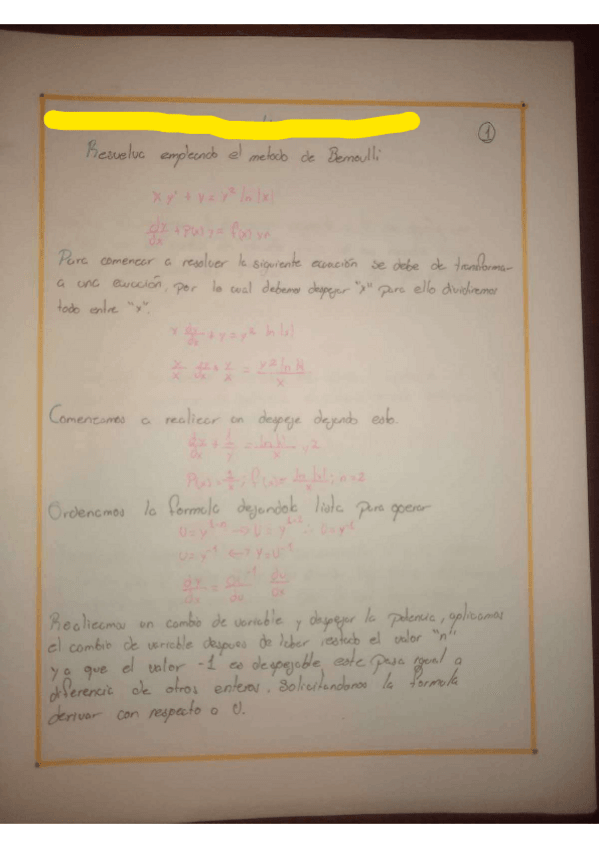 ①
Resuelva empleando el metodo de Bernoulli
x y' + y = y² ln |x|
dy/dx + P(x) y = f(x) yn
Para comenzar a resolver la siguiente ecuación se debe de transformar
a una ecuación, por lo cual debemos despejar "x" para ello dividiremos
todo entre "x".
x dy/dx + y = y² ln |x|
x/x dy/dx + y/x = y² ln |x| / x
Comenzamos a realizar un despeje dejando esto.
P(x) = ; f(x) = ln |x| / x ; n = 2
Ordenamos la formula dejandola lista para operar
U = y¹⁻ⁿ → U = y¹⁻² ∴ U = y⁻¹
U = y⁻¹ ↔ y = U⁻¹
dy/dx = du⁻¹/du du/dx
Realizamos un cambio de variable y despejar la potencia, aplicamos
el cambio de variable despues de haber restado el valor "n"
ya que el valor -1 es despejable este pasa igual a
diferencia de otros enteros, Solicitandonos la formula
derivar con respecto a U.